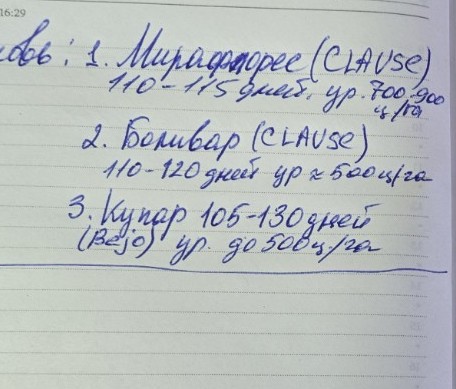 16:29
овь: 1. Мирафлорес (CLAUSE)
110-115 дней, ур. 700-900
ц/га
2. Боливар (CLAUSE)
110-120 дней ур ≈ 500ц/га
3. Купар 105-130 дней
(Bejo) ур. до 500ц/га